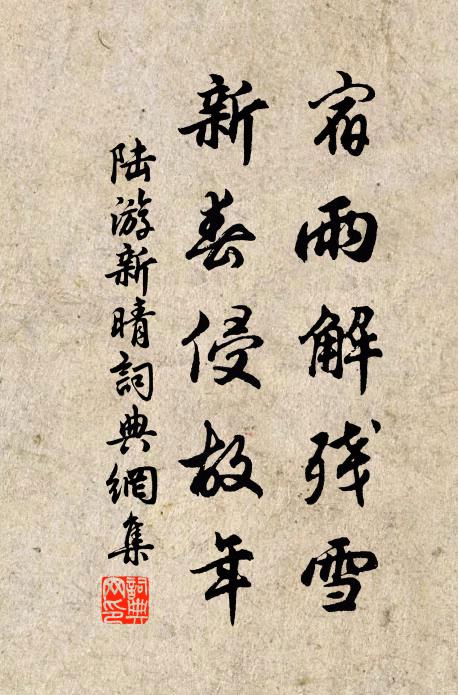 宿雨解残雪
新春侵故年
陆游新晴詞典網集
詞典网印